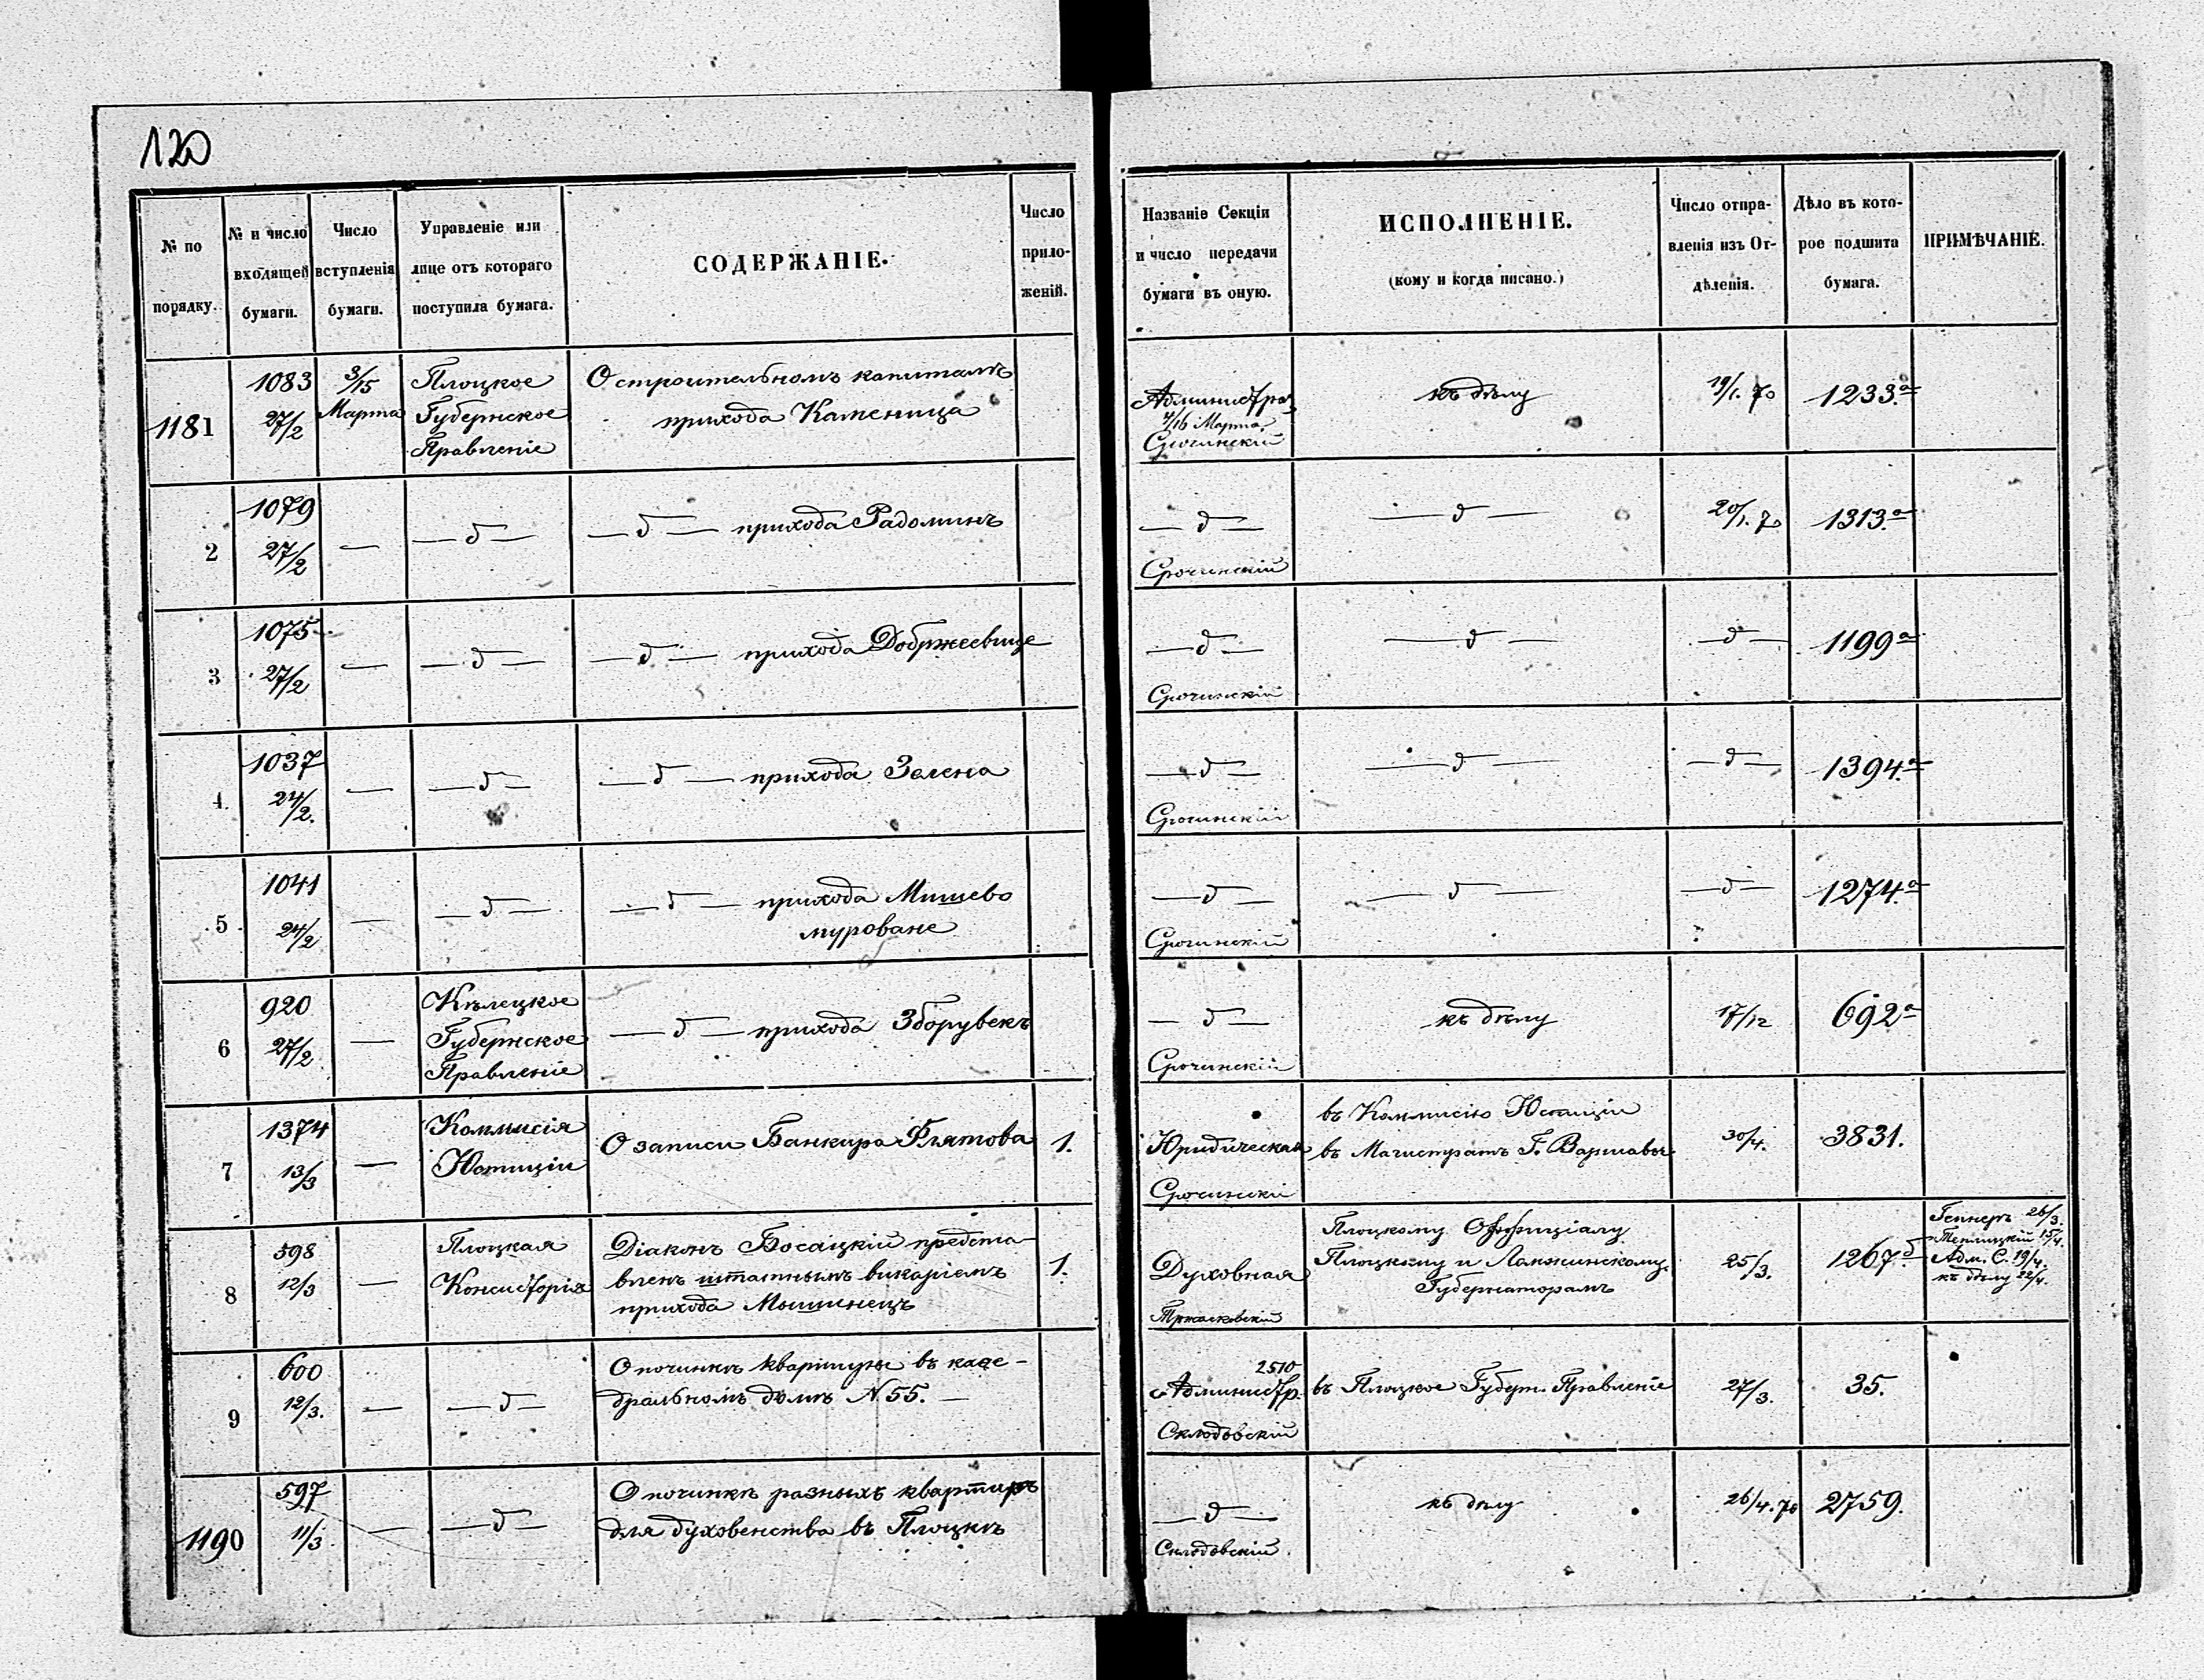 120
№ по порядку.
№ и число входящей бумаги.
Число вступленія бумаги.
Управленіе или лице отъ котораго поступила бумага.
СОДЕРЖАНІЕ.
Число приложеній.
Названіе Секціи и число передачи бумаги въ оную.
ИСПОЛНЕНІЕ.
(кому и когда писано.)
Число отправленія изъ Отдѣленія.
Дѣло въ которое подшита бумага.
ПРИМѢЧАНІЕ.
1181
1083
27/2
3/15
Марта
Плоцкое
Губернское
Правленіе
О строительномъ капиталѣ
прихода Каменица
Администра
4/16 Марта
Срочинскій
къ дѣлу
19/1. 70
1233.а
2
1079
27/2
—
— д —
— д — прихода Радоминъ
— д —
Срочинскій
— д —
20/1. 70
1313.а
3
1075
27/2
—
— д —
— д — прихода Добржеевице
— д —
Срочинскій
— д —
— д —
1199 а
4
1037
24/2.
—
— д —
— д — прихода Зелена
— д —
Срочинскій
— д —
— д —
1394.а
5
1041
24/2
—
— д —
— д — прихода Мишево
муроване
— д —
Срочинскій
— д —
— д —
1274.а
6
920
27/2
—
Кѣлецкое
Губернское
Правленіе
— д — прихода Зборувекъ
— д —
Срочинскій
къ дѣлу
17/12
692 а
7
1374
13/3
—
Коммисія
Юстиціи
О записи Банкира Флятова
1.
Юридическая
Срочинскій
въ Коммисію Юстиціи
въ Магистратъ Г. Варшавы
30/4.
3831.
8
598
12/3
—
Плоцкая
Консисторія
Діаконъ Босацкій предста-
вленъ штатнымъ викаріемъ
прихода Мышинецъ
1.
Духовная
Плоцкому Оффиціалу
Плоцкому и Ломжинскому
Губернаторамъ
25/3.
1267.б
26/3.
15/4.
Адм. С. 19/4.
къ дѣлу 22/4.
9
600
12/3.
—
— д —
О починкѣ квартиры въ каѳе-
дральномъ домѣ N 55. —
2510
Администр.
Склодовскій
въ Плоцкое Губерн. Правленіе
27/3.
35.
1190
597
11/3
—
— д —
О починкѣ разныхъ квартиръ
для духовенства въ Плоцкѣ
— д —
Склодовскій.
къ дѣлу
26/4. 70
2759.